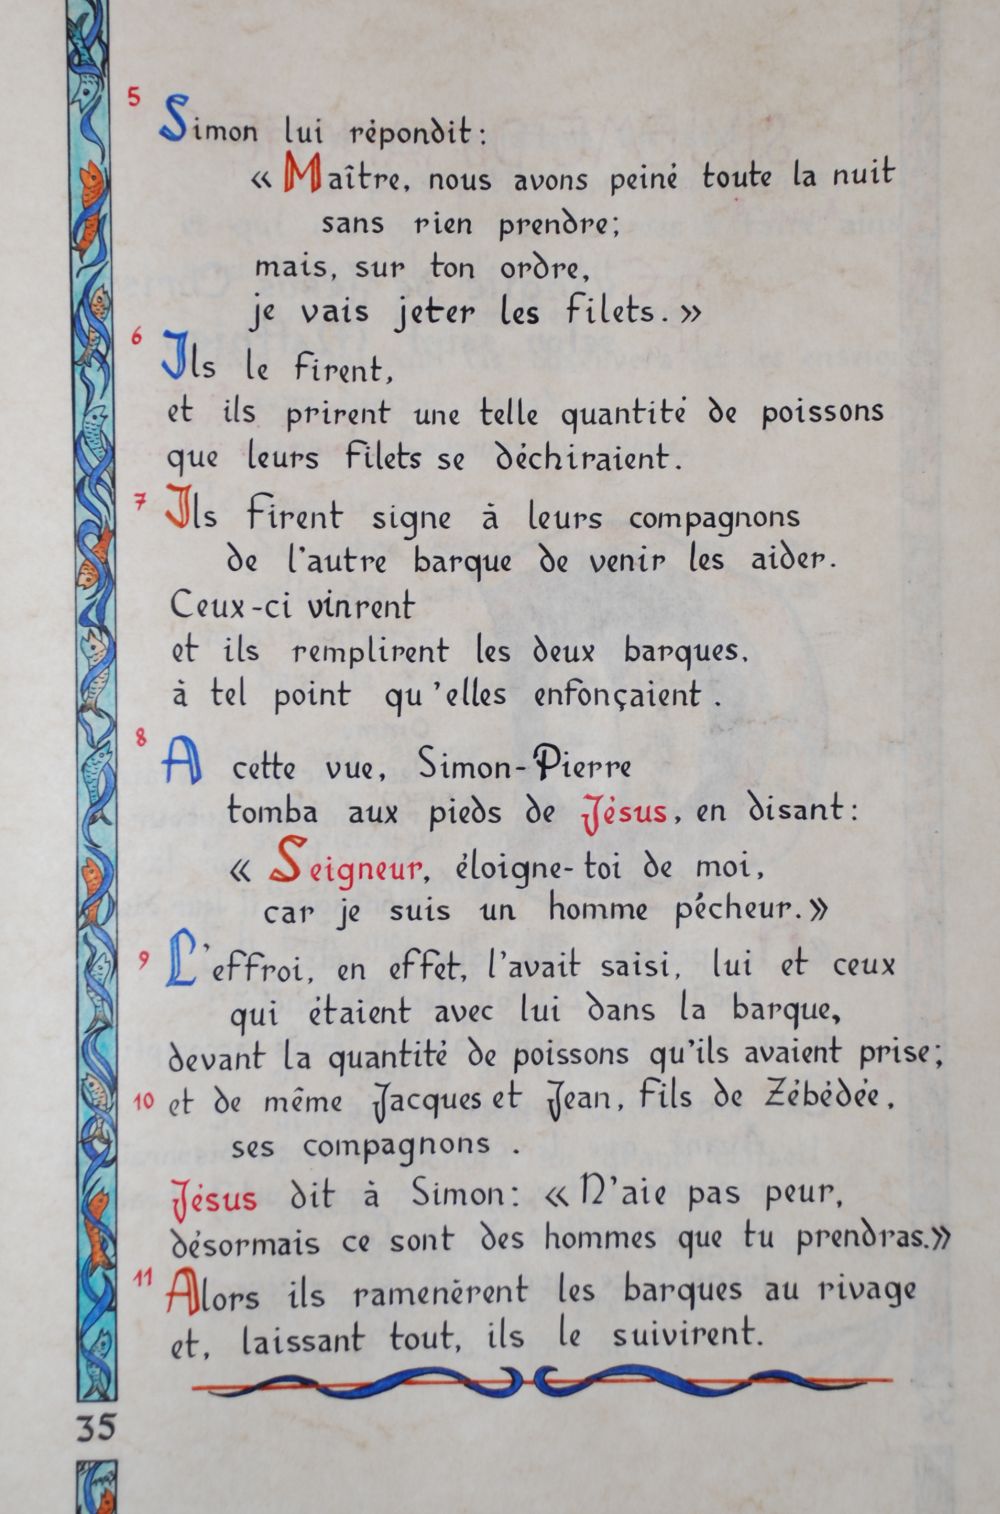 5 Simon lui répondit :
« Maître, nous avons peiné toute la nuit
sans rien prendre ;
mais, sur ton ordre,
je vais jeter les filets. »
6 Ils le firent,
et ils prirent une telle quantité de poissons
que leurs filets se déchiraient.
7 Ils firent signe à leurs compagnons
de l'autre barque de venir les aider.
Ceux-ci vinrent
et ils remplirent les deux barques,
à tel point qu'elles enfonçaient .
8 A cette vue, Simon-Pierre
tomba aux pieds de Jésus, en disant :
« Seigneur, éloigne-toi de moi,
car je suis un homme pécheur. »
9 L'effroi, en effet, l'avait saisi, lui et ceux
qui étaient avec lui dans la barque,
devant la quantité de poissons qu'ils avaient prise ;
10 et de même Jacques et Jean, fils de Zébédée,
ses compagnons .
Jésus dit à Simon : « N'aie pas peur,
désormais ce sont des hommes que tu prendras. »
11 Alors ils ramenèrent les barques au rivage
et, laissant tout, ils le suivirent.
35